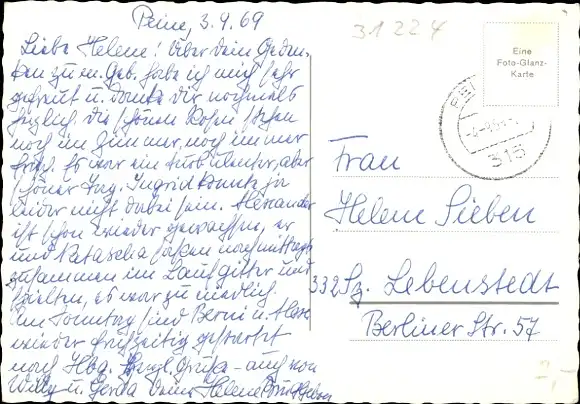 Peine, 3.9.69
31224
Liebe Helene! Über dein Geden-
ken zu m. Geb. habe ich mich sehr
gefreut u. danke dir nochmals
herzlich, die schönen Rosen stehen
noch im Zimmer, noch immer
frisch. Es war ein turbulenter, aber
schöner Tag. Ingrid konnte ja
leider nicht dabei sein. Alexander
ist schon wieder gewachsen, er
und Natascha saßen nachmittags
zusammen im Laufgitter und
spielten, es war zu niedlich.
Am Sonntag sind Berni u. Alex
wieder frühzeitig gestartet
nach Hbg. Herzl. Grüße - auch von
Willy u. Gerda deine Helene
Eine
Foto-Glanz-
Karte
315
Frau
Helene Sieben
332 Sz. Lebenstedt
Berliner Str. 57
2,-